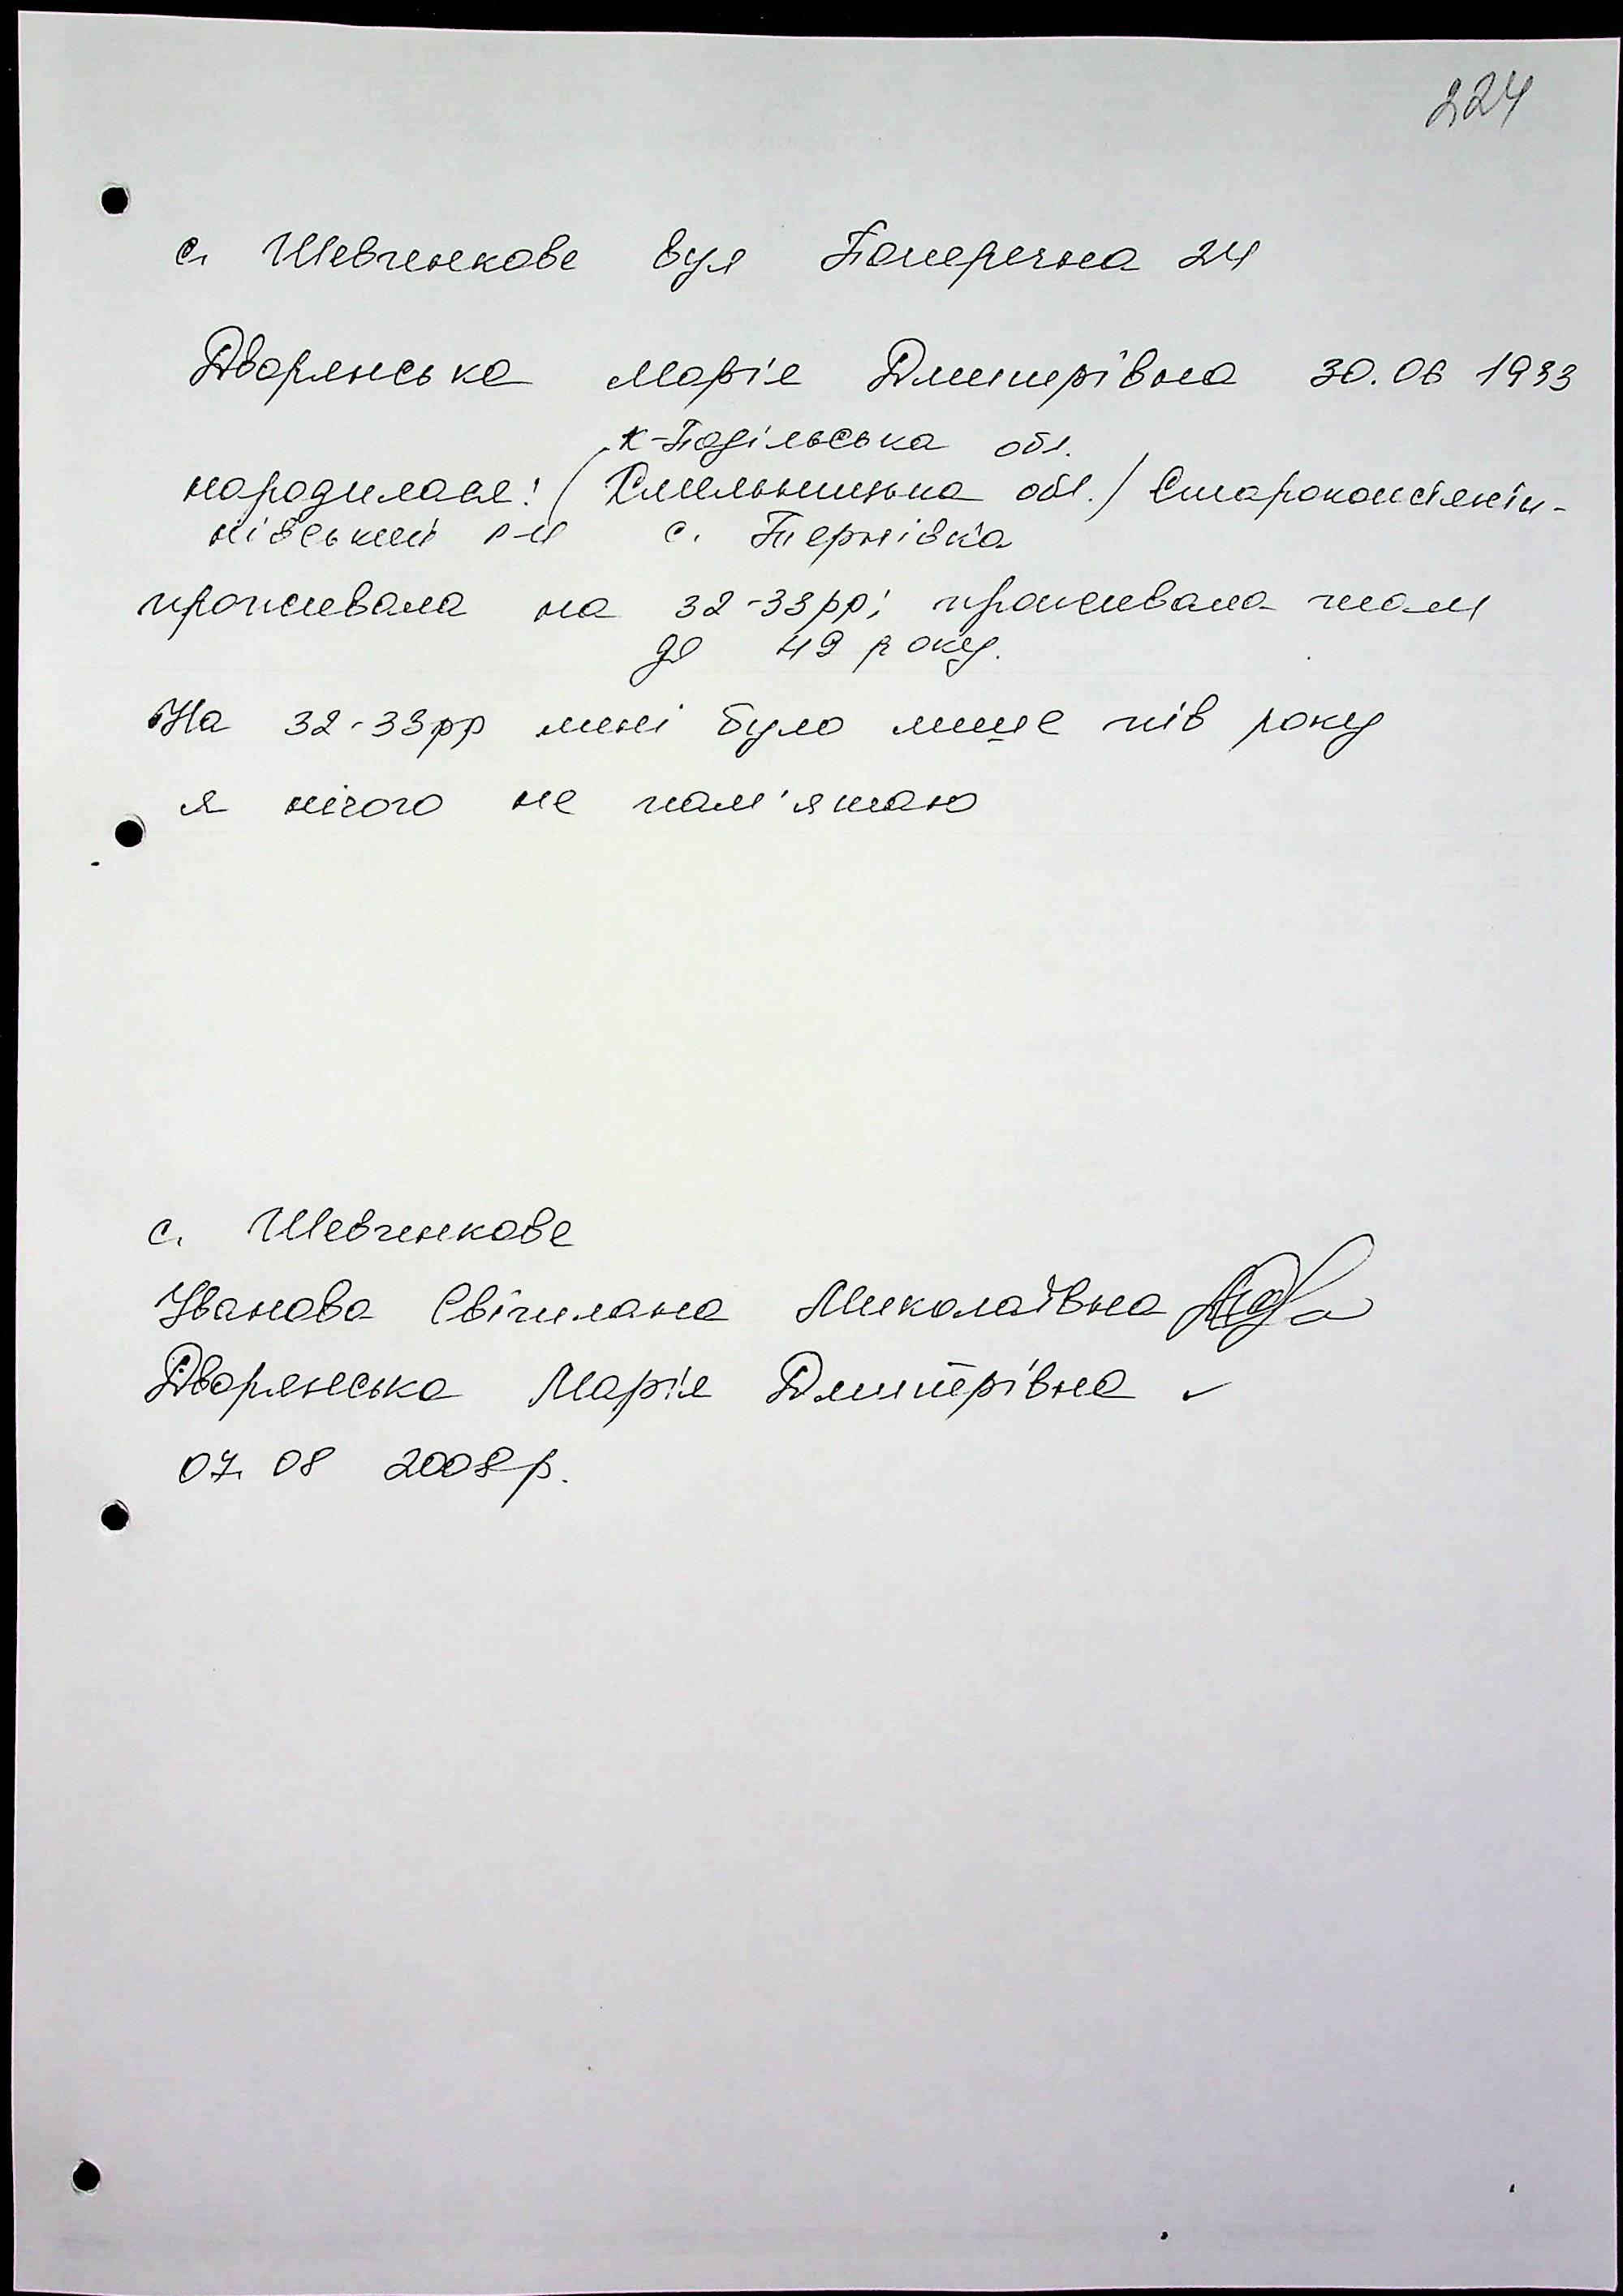 224
с. Шевченкове вул Поперечна 24
Дворянська Марія Дмитрівна 30.06 1933
к-Подільська обл.
народилася: (Хмельницька обл.) Старокостянтин-
нівський р-н с. Тернівка
проживала на 32-33рр; проживала там
до 49 року.
На 32-33рр мені було лише пів року
я нічого не пам'ятаю
с. Шевченкове
Іванова Світлана Миколаївна
Дворянська Марія Дмитрівна ✓
07. 08 2008р.